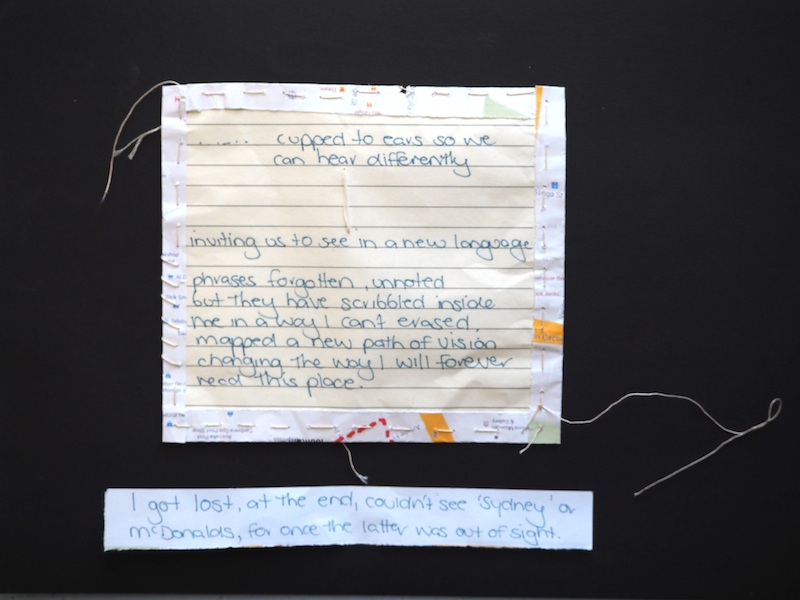 ..... cupped to ears so we
can hear differently
inviting us to see in a new language
phrases forgotten, unnoted
but they have scribbled inside
me in a way I can't erased.
mapped a new path of vision
changing the way I will forever
read this place.
I got lost, at the end, couldn't see 'Sydney' or
McDonalds, for once the latter was out of sight.